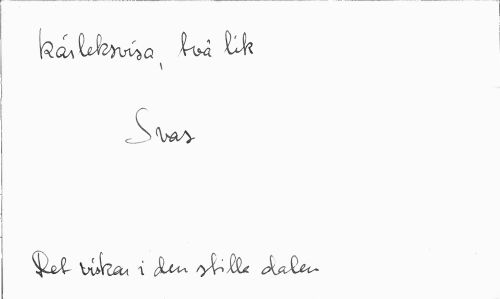 Kärleksvisa, två lik
Svas
Det viskar i den stilla dalen